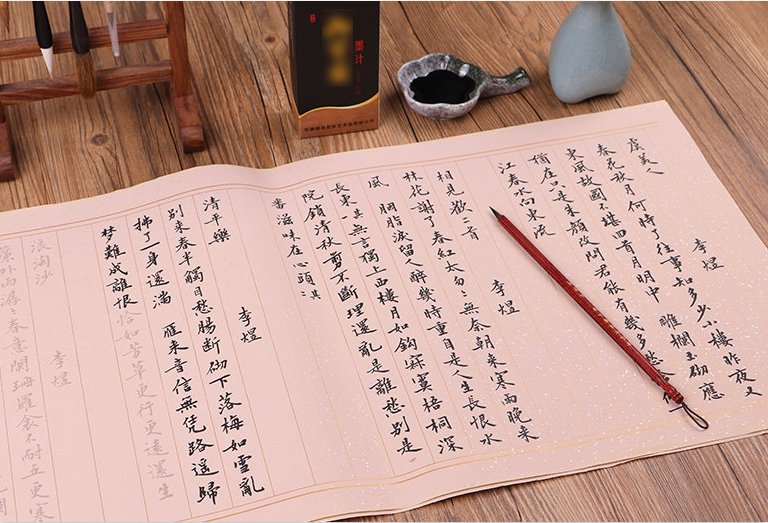 墨汁
虞美人
李煜
春花秋月何時了往事知多少小樓昨夜又
東風故國不堪回首月明中 雕欄玉砌應
猶在只是朱顏改問君能有幾多愁
江春水向東流
相見歡二首
李煜
林花謝了春紅太匆〻無奈朝来寒雨晚来
風 胭脂淚留人醉幾時重自是人生長恨水
長東 其一 無言獨上西樓月如鈎寂寞梧桐深
院鎖清秋剪不斷理還亂是離愁別是
番滋味在心頭 其
清平樂
李煜
別来春半觸目愁腸斷砌下落梅如雪亂
拂了一身還滿 雁来音信無凭路遥歸
夢難成離恨恰如芳草更行更遠還生
浪淘沙
李煜
簾外雨潺〻春意闌珊羅衾不耐五更寒